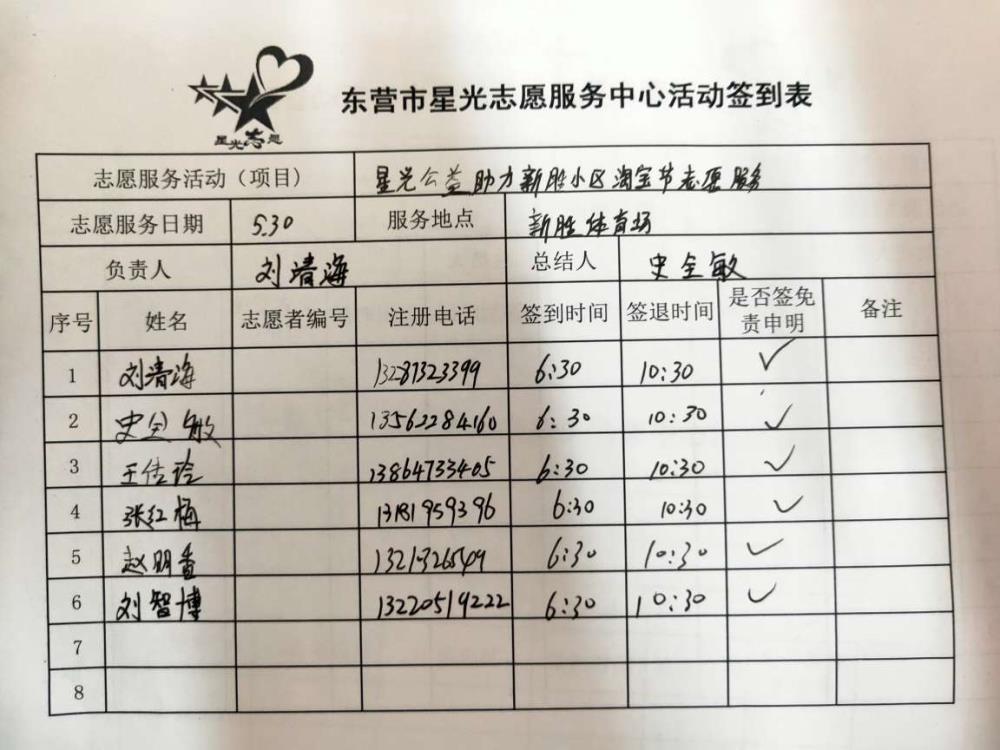 星光志愿
东营市星光志愿服务中心活动签到表
志愿服务活动（项目） 星光公益助力新胜小区淘宝节志愿服务
志愿服务日期 5.30 服务地点 新胜体育场
负责人 刘清海 总结人 史全敏
序号 姓名 志愿者编号 注册电话 签到时间 签退时间 是否签免责申明 备注
1 刘清海 13287323399 6:30 10:30 ✓
2 史全敏 13562284160 6:30 10:30 ✓
3 王佳玲 13864733405 6:30 10:30 ✓
4 张红梅 13181959396 6:30 10:30 ✓
5 赵明香 6:30 10:30 ✓
6 刘智博 13220519222 6:30 10:30 ✓
7
8